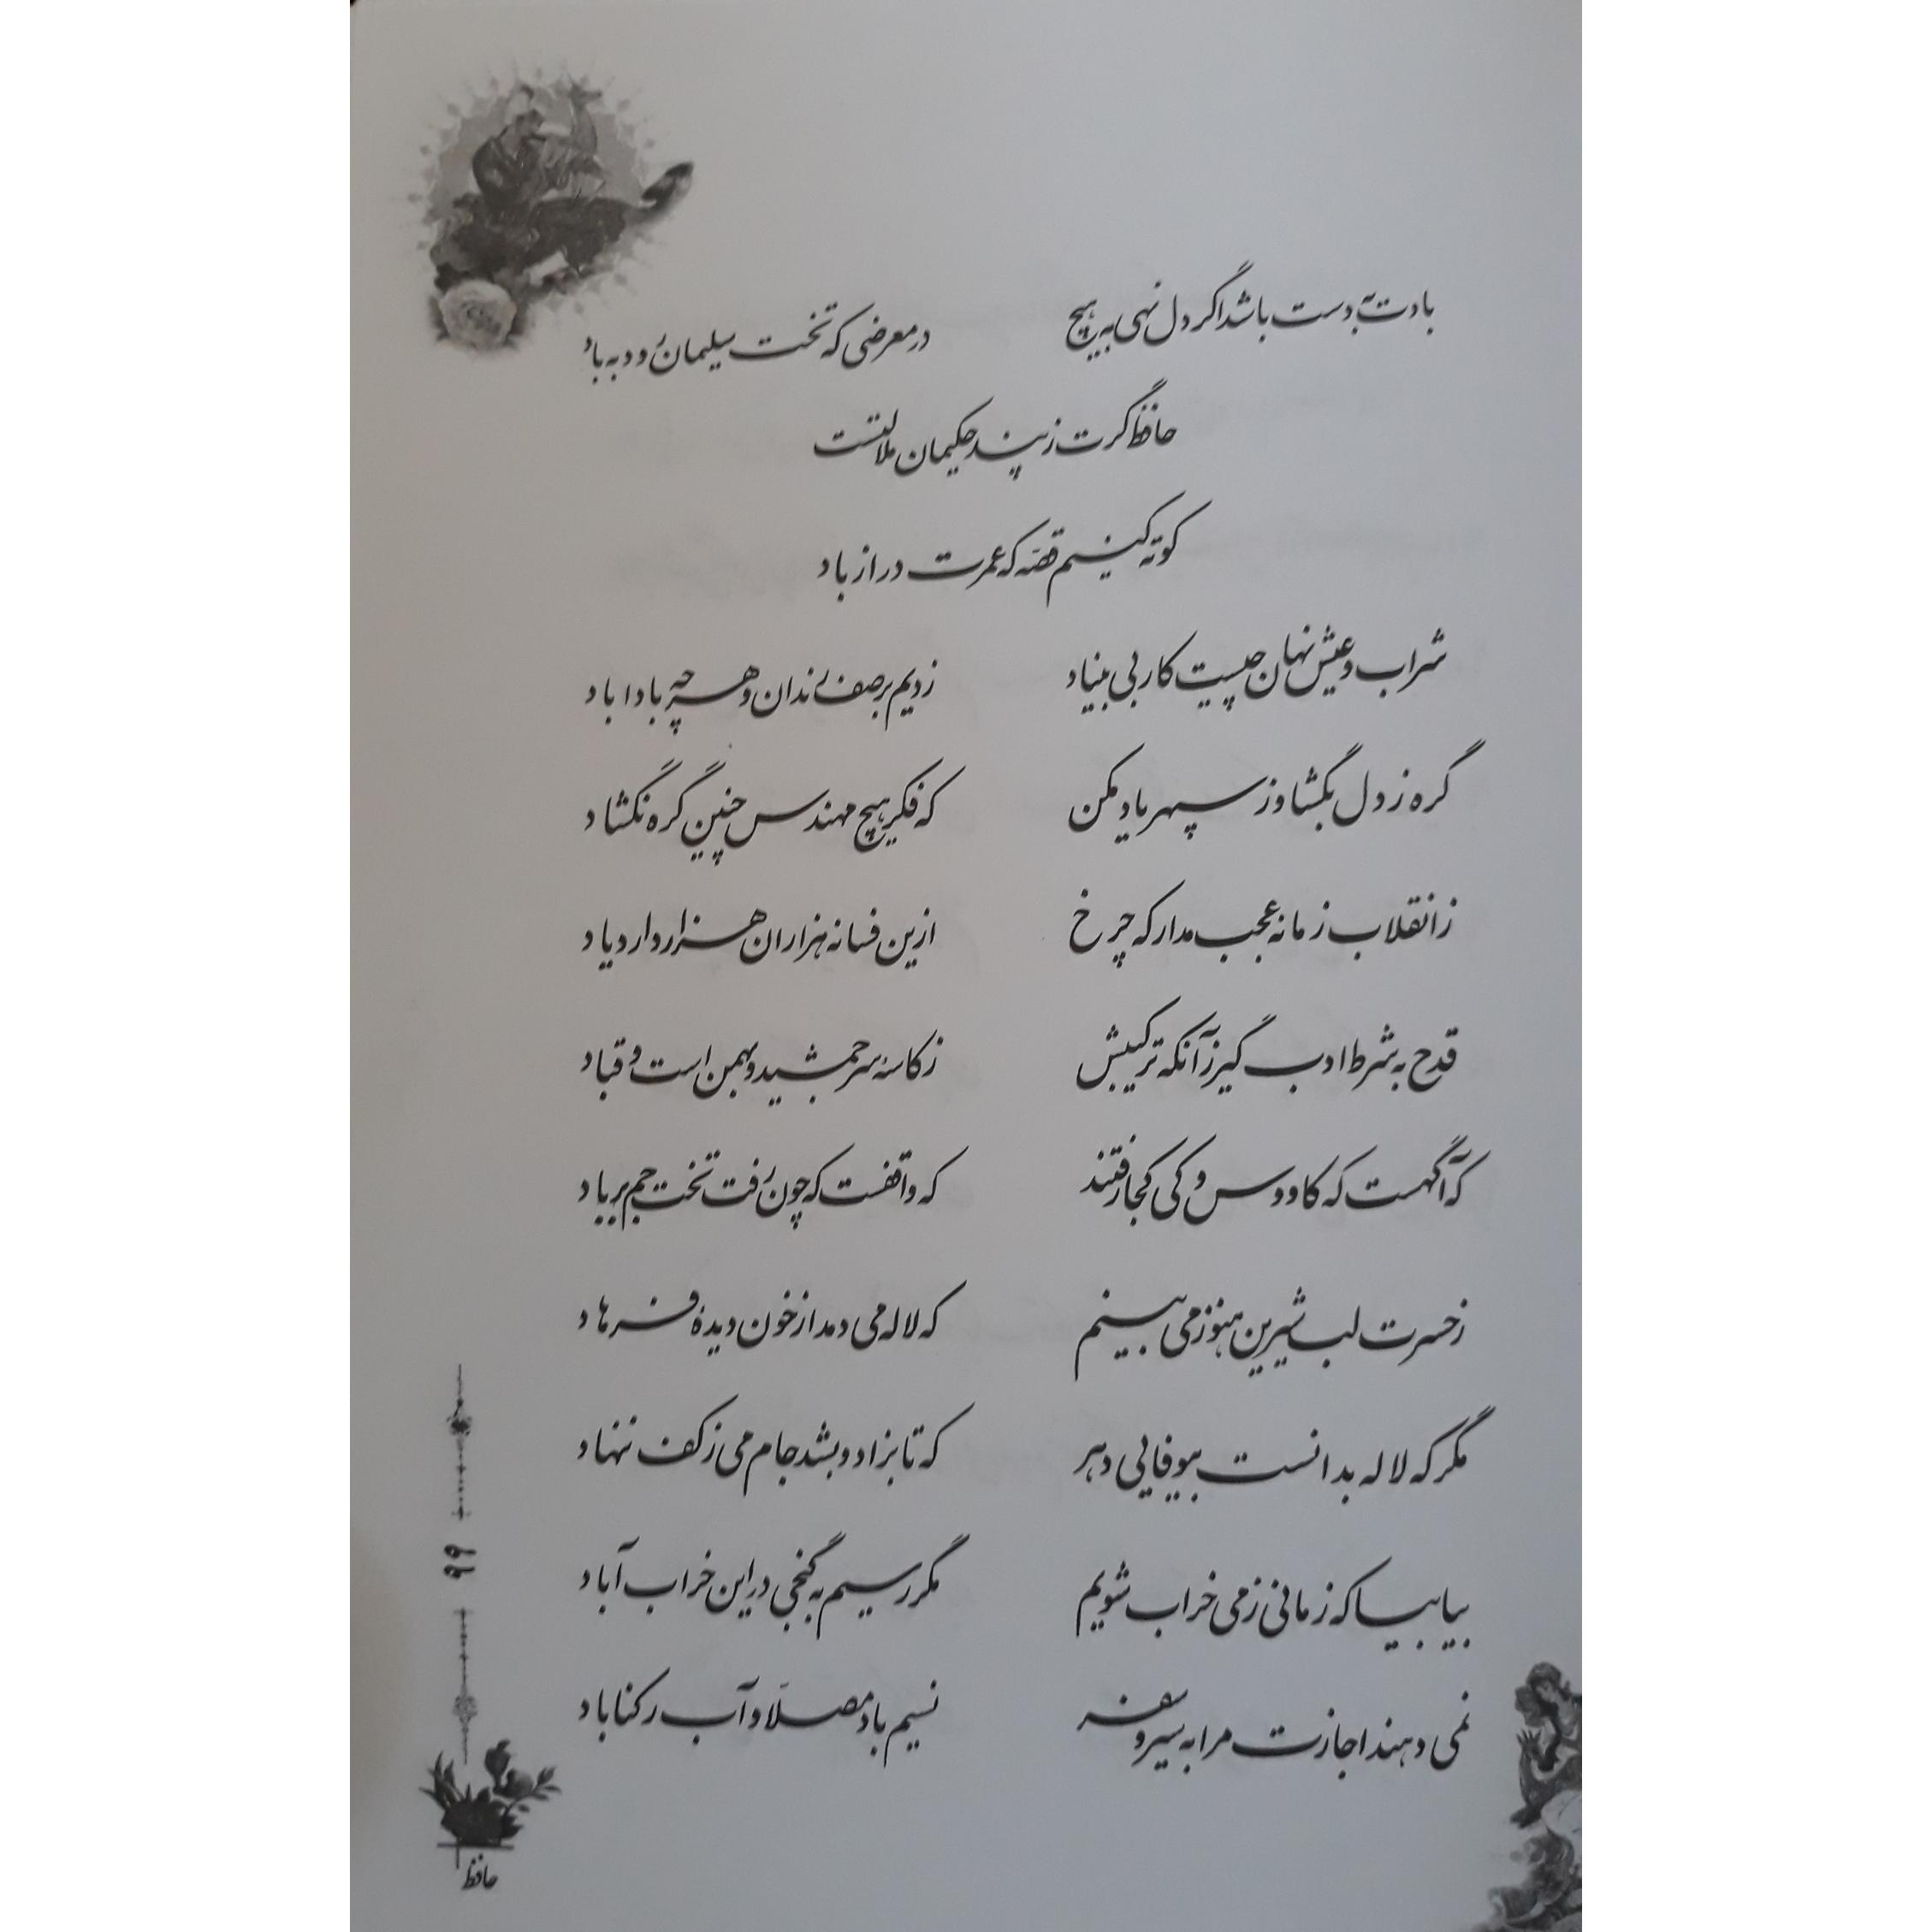 بادت به دست باشد اگر دل نهی به هیچ در معرضی که تخت سلیمان رود به باد
حافظ گرت ز پند حکیمان ملالتست
کوته کنیم قصّه که عمرت دراز باد
شراب و عیش نهان چیست کار بی بنیاد زدیم بر صف رندان و هر چه بادا باد
گره ز دل بگشا وز سپهر یاد مکن که فکر هیچ مهندس چنین گره نگشاد
ز انقلاب زمانه عجب مدار که چرخ ازین فسانه هزاران هزار دارد یاد
قدح به شرط ادب گیر زآنکه ترکیبش ز کاسهٔ سر جمشید و بهمن است و قباد
که آگهست که کاووس و کی کجا رفتند که واقفست که چون رفت تخت جم بر باد
ز حسرت لب شیرین هنوز می بینم که لاله می دمد از خون دیدهٔ فرهاد
مگر که لاله بدانست بیوفایی دهر که تا بزاد و بشد جام می ز کف ننهاد
بیا بیا که زمانی ز می خراب شویم مگر رسیم به گنجی در این خراب آباد
نمی دهند اجازت مرا به سیر و سفر نسیم باد مصلّا و آب رکناباد
۹۹
حافظ